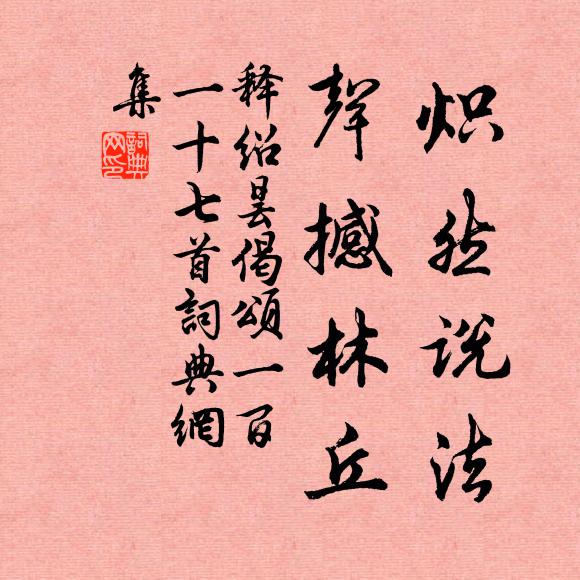 炽然说法
声撼林丘
释绍昙偈颂一百
一十七首詞典網
集
詞典
网印